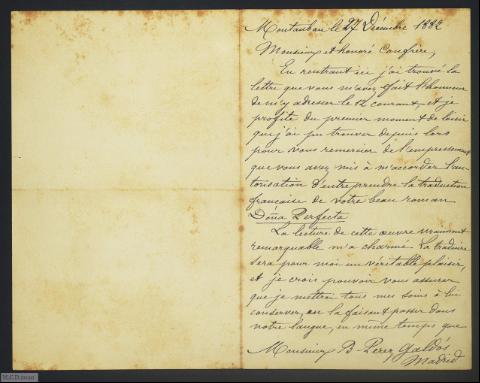 Montauban le 27 Décembre 1882
Monsieur et honoré Confrère,
En rentrant ici j'ai trouvé la
lettre que vous m'avez fait l'honneur
de m'y adresser le 12 courant, et je
profite du premier moment de loisir
que j'ai pu trouver depuis lors
pour vous remercier de l'empressement
que vous avez mis à m'accorder l'au-
torisation d'entreprendre la traduction
française de votre beau roman
Doña Perfecta
La lecture de cette œuvre vraiment
remarquable m'a charmé. La traduire
sera pour moi un véritable plaisir,
et je crois pouvoir vous assurer
que je mettrai tous mes soins à lui
conserver, en la faisant passer dans
notre langue, en même temps que
Monsieur B. Perez Galdós
Madrid